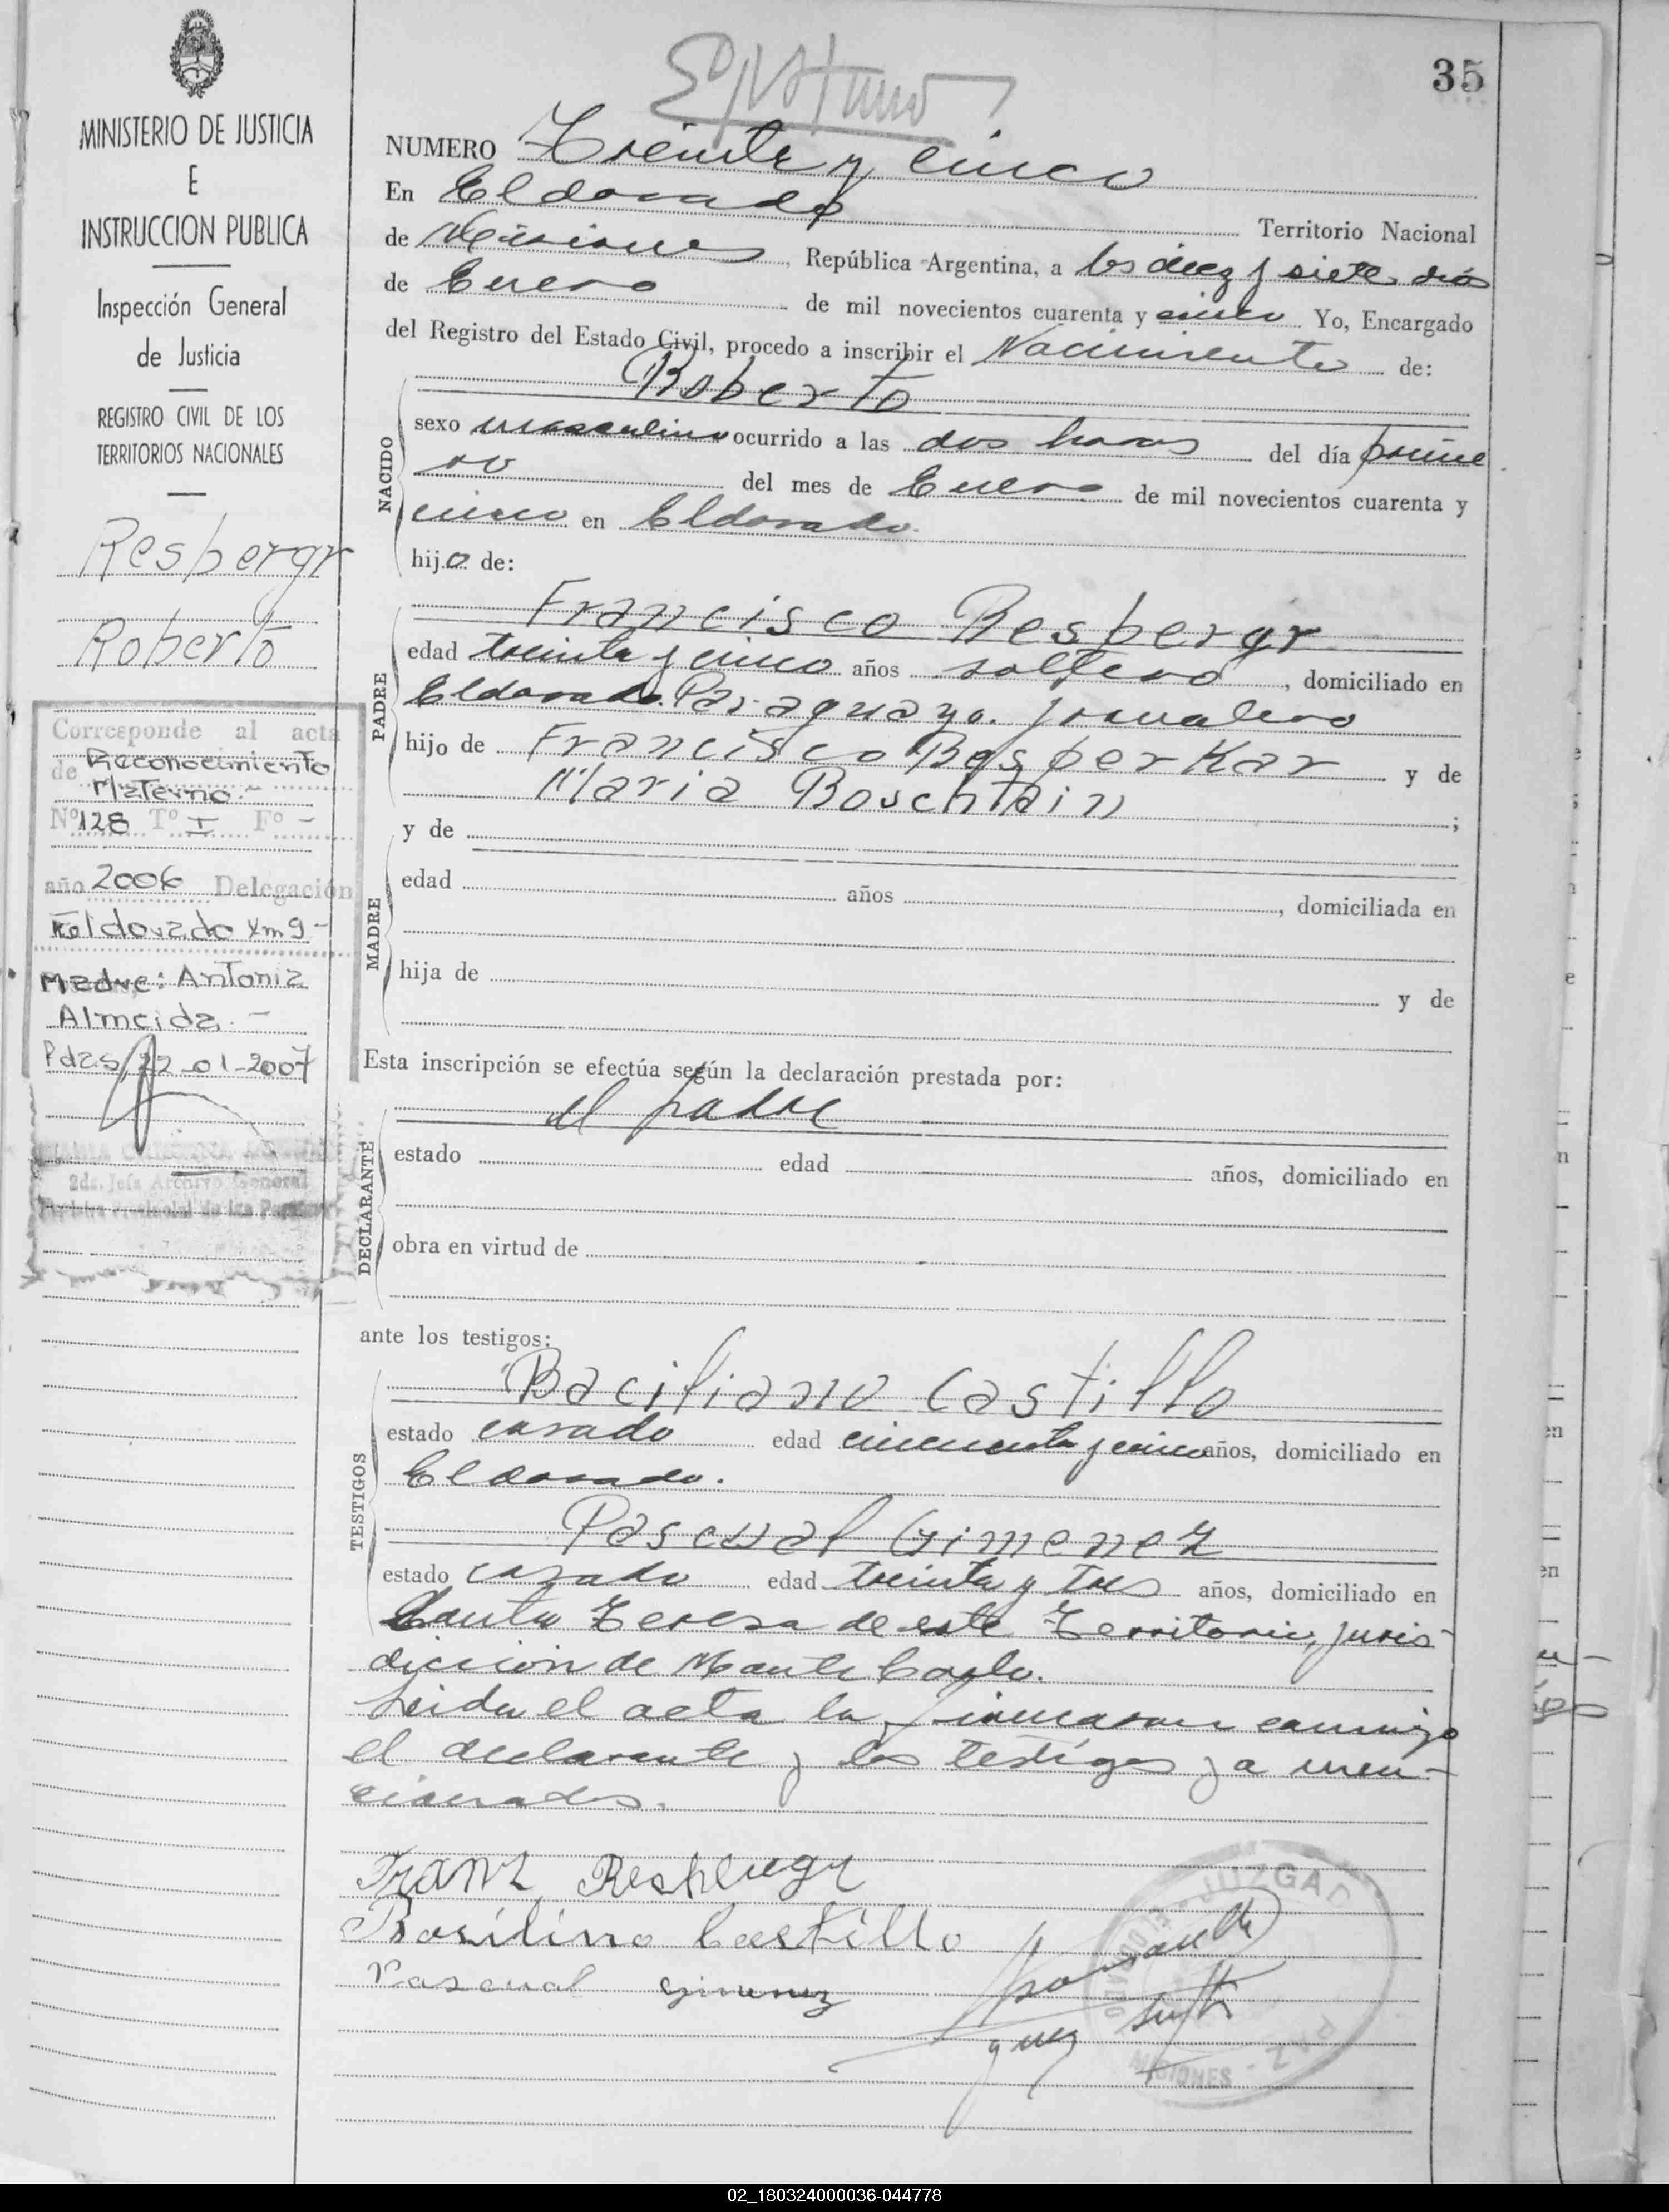 35
MINISTERIO DE JUSTICIA
E
INSTRUCCION PUBLICA
Inspección General
de Justicia
REGISTRO CIVIL DE LOS
TERRITORIOS NACIONALES
Resbergr
Roberto
Corresponde al acta
de Reconocimiento
Materno.-
Nº 128 Tº I Fº -
año 2006 Delegación
Eldorado Km 9 -
Madre: Antonia
Almeida. -
Pdas, 22-01-2007
2da. Jefa Archivo General
Registro Provincial de las Personas
NUMERO Treinta y cinco
En Eldorado Territorio Nacional
de Misiones, República Argentina, a los diez y siete días
de Enero de mil novecientos cuarenta y cinco Yo, Encargado
del Registro del Estado Civil, procedo a inscribir el Nacimiento de:
Roberto
NACIDO
sexo masculino ocurrido a las dos horas del día prime
ro del mes de Enero de mil novecientos cuarenta y
cinco en Eldorado.
hijo de:
Francisco Resbergr
PADRE
edad treinta y cinco años soltero, domiciliado en
Eldorado. Paraguayo. jornalero
hijo de Francisco Resperkar y de
Maria Boschtain ;
y de
MADRE
edad años , domiciliada en
hija de y de
Esta inscripción se efectúa según la declaración prestada por:
el padre
DECLARANTE
estado edad años, domiciliado en
obra en virtud de
ante los testigos:
Baciliano Castillo
TESTIGOS
estado casado edad cincuenta y cinco años, domiciliado en
Eldorado.
Pascual Gimenez
estado casado edad treinta y tres años, domiciliado en
Santa Teresa de este Territorio, juris-
dicción de Monte Carlo.
Leida el acta la firmaron conmigo
el declarante y los testigos ya men-
cionados.
Franz Resbergr
Basilino Castillo
Pascual Gimenez
JUZGADO
PAZ
MISIONES
02_180324000036-044778